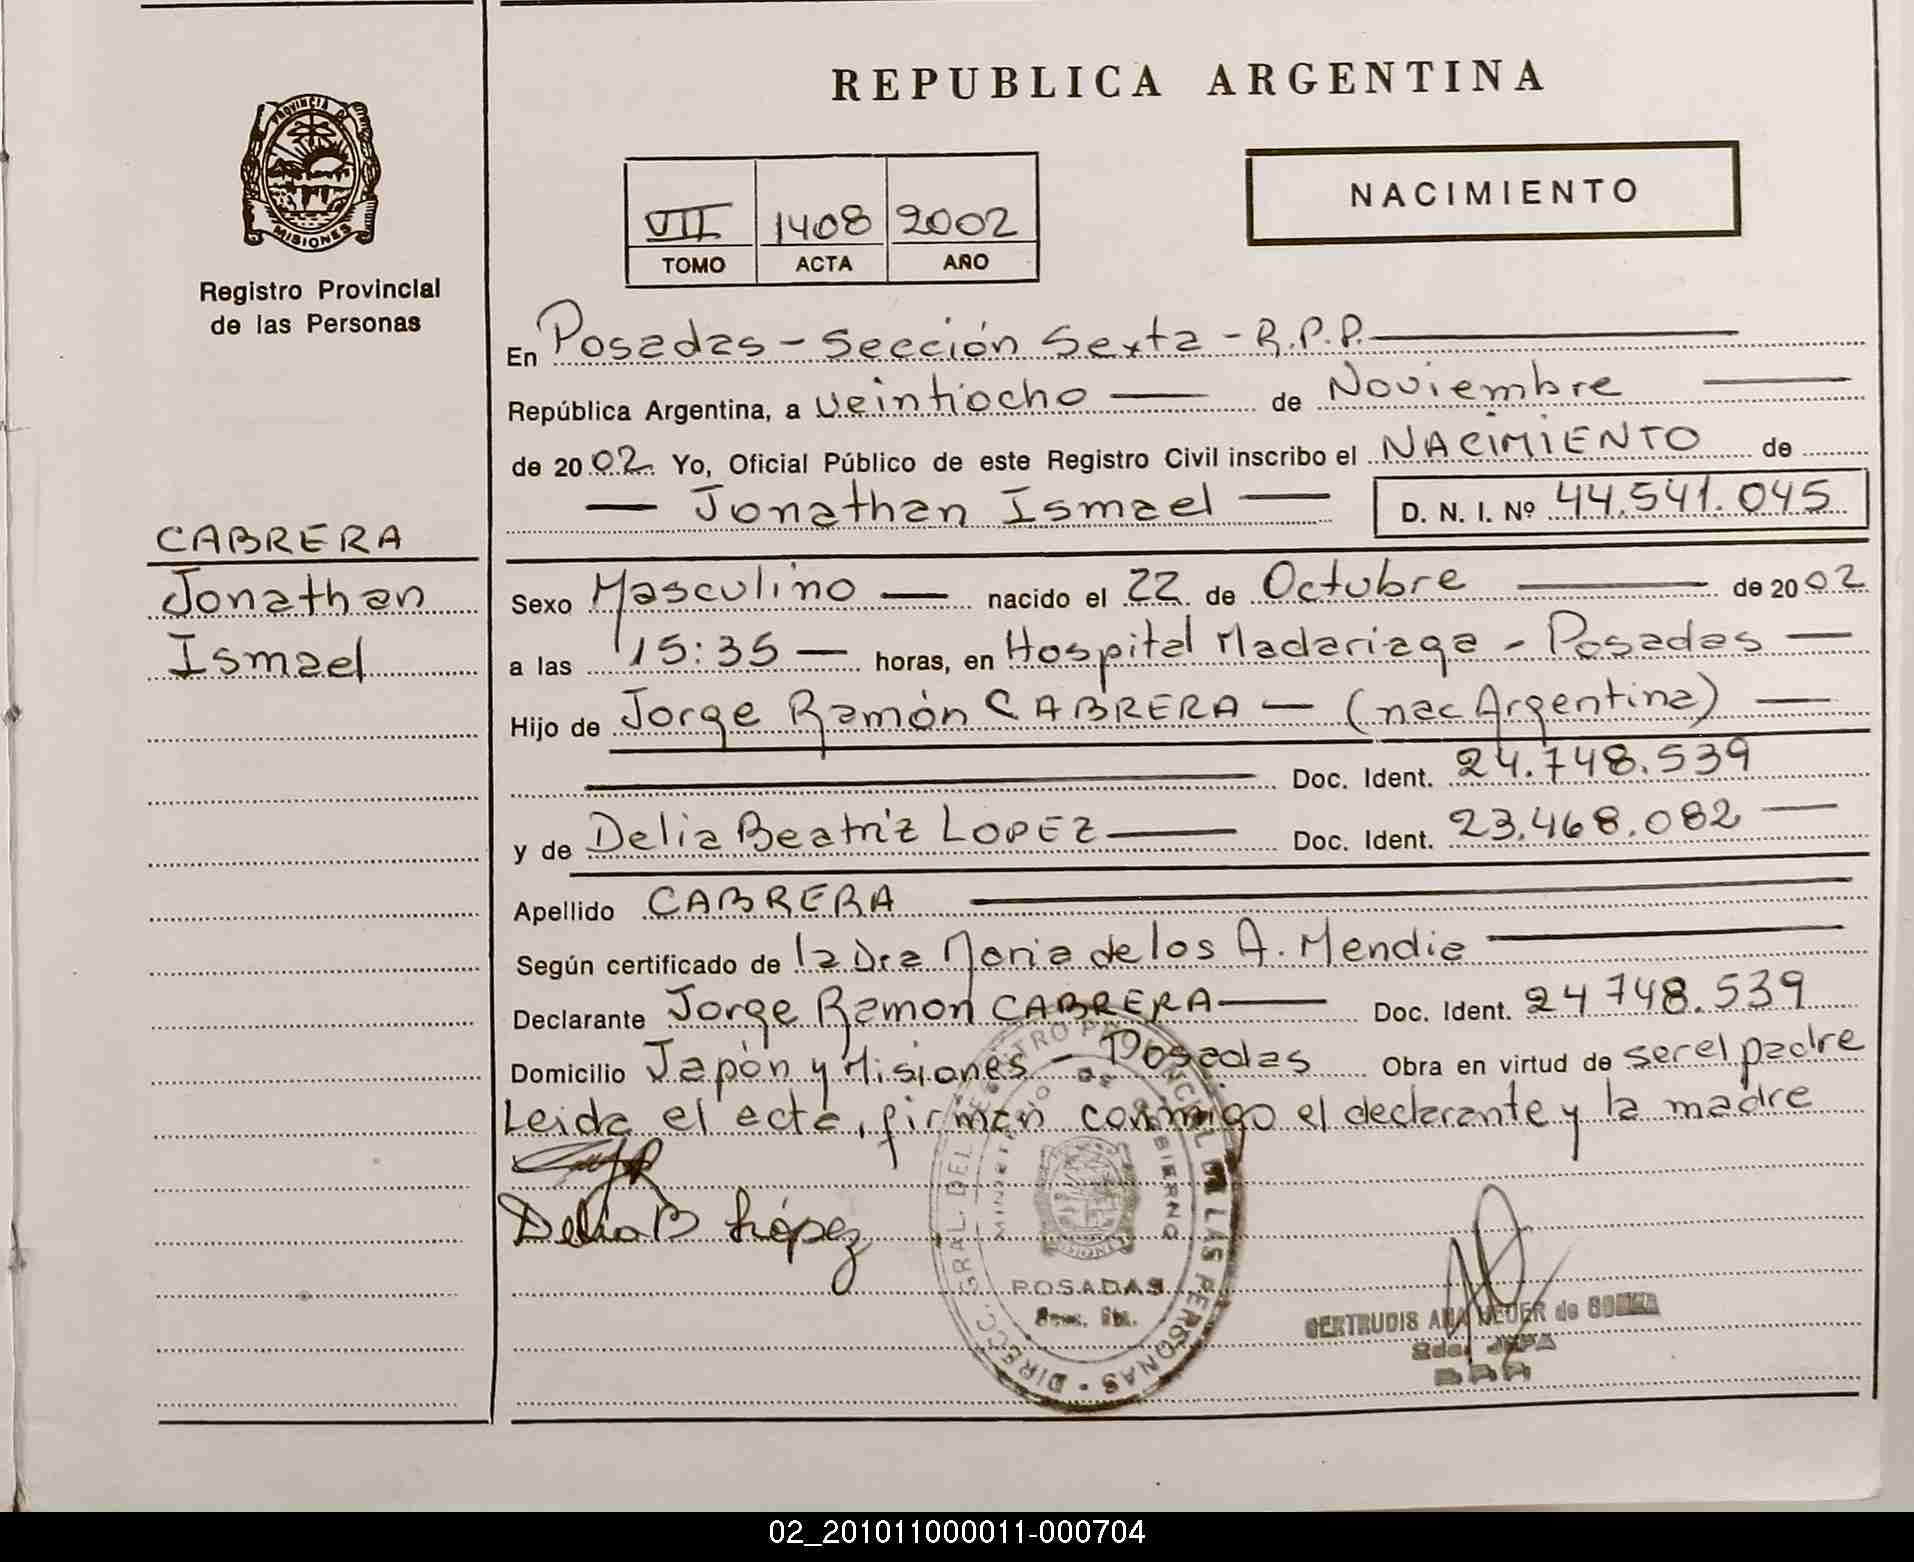 REPUBLICA ARGENTINA
PROVINCIA DE
MISIONES
Registro Provincial
de las Personas
NACIMIENTO
VII 1408 2002
TOMO ACTA AÑO
En Posadas - Sección Sexta - R.P.P.
República Argentina, a veintiocho de Noviembre
de 2002. Yo, Oficial Público de este Registro Civil inscribo el NACIMIENTO de
Jonathan Ismael D. N. I. Nº 44.541.045
CABRERA
Jonathan
Ismael
Sexo Masculino nacido el 22 de Octubre de 2002
a las 15:35 horas, en Hospital Madariaga - Posadas
Hijo de Jorge Ramón CABRERA (nac Argentina)
Doc. Ident. 24.748.539
y de Delia Beatriz LOPEZ Doc. Ident. 23.468.082
Apellido CABRERA
Según certificado de la Dra Maria de los A. Mendie
Declarante Jorge Ramon CABRERA Doc. Ident. 24 748.539
Domicilio Japón y Misiones - Posadas Obra en virtud de ser el padre
Leida el acta, firman conmigo el declarante y la madre
Delia B López
DIRECC. GRAL. DEL REGISTRO PROVINCIAL DE LAS PERSONAS
MINISTERIO DE GOBIERNO
POSADAS
GERTRUDIS ANA de
2da. JEFA
02_201011000011-000704